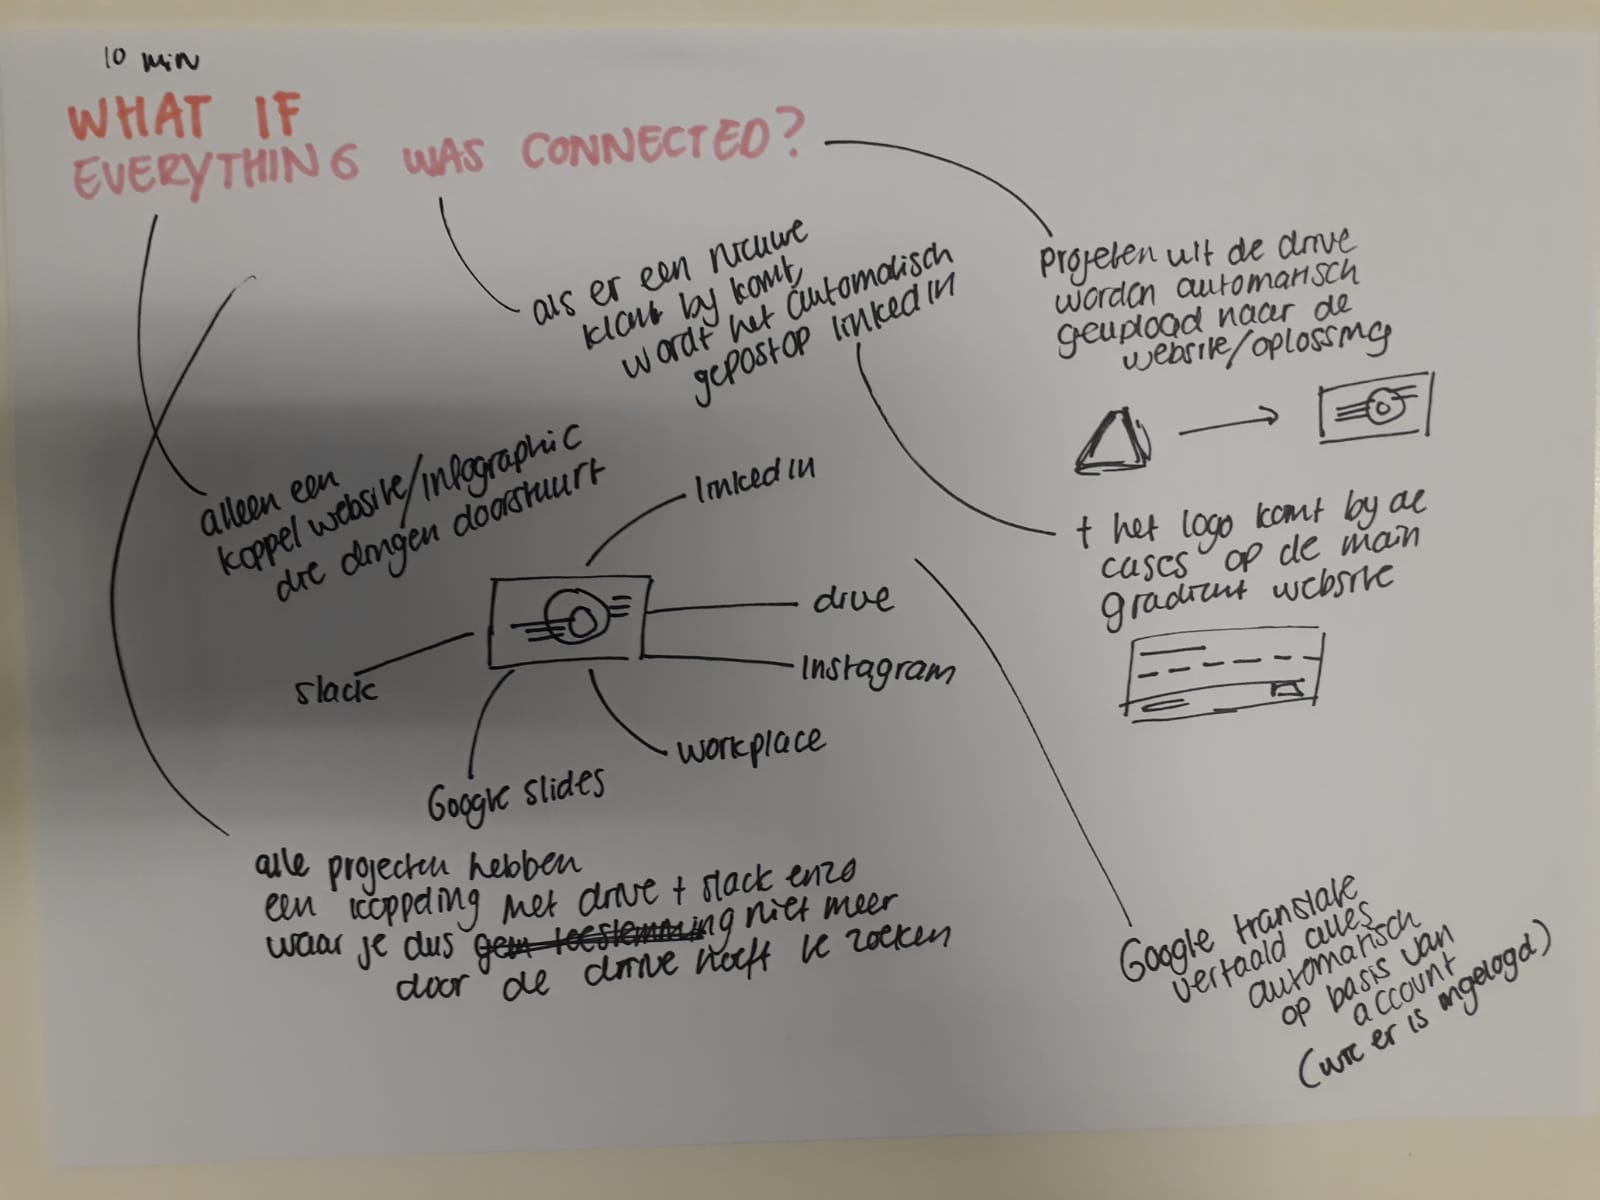 10 min
WHAT IF
EVERYTHING WAS CONNECTED?
als er een nieuwe
klant by komt,
wordt het automatisch
gepost op linkedIn
projecten uit de drive
worden automatisch
geupload naar de
website/oplossing
+ het logo komt by de
cases op de main
gradient website
alleen een
koppel website/infographic
die dingen doorstuurt
linkedIn
drive
Instagram
workplace
Google slides
slack
alle projecten hebben
een koppeling met drive + slack enzo
waar je dus geen toestemming niet meer
door de drive hoeft te zoeken
Google translate
vertaald alles
automatisch
op basis van
account
(wie er is ingelogd)